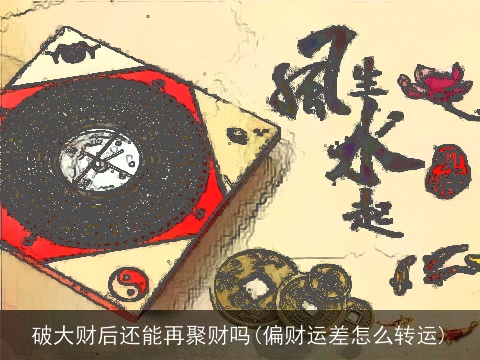 風生水起
破大财后还能再聚财吗(偏财运差怎么转运)